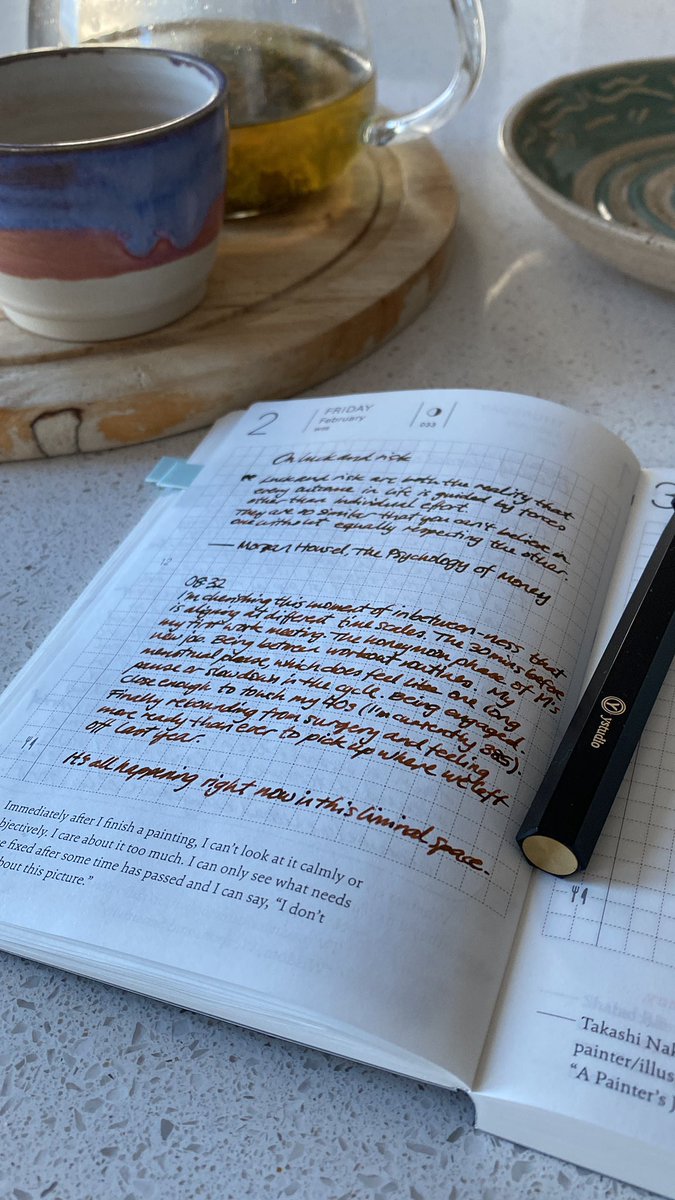 2
FRIDAY
February
W5
033
3
On luck and risk
" Luck and risk are both the reality that
every outcome in life is guided by forces
other than individual effort.
They are so similar that you can't believe in
one without equally respecting the other.
— Morgan Housel, The Psychology of Money
12
08:32
I'm cherishing this moment of in between-ness that
is aligning at different time scales. The 30 mins before
my first work meeting. The honeymoon phase of M's
new job. Being between workout routines. My
menstrual phase, which does feel like one long
pause or slowdown in the cycle. Being engaged.
Close enough to touch my 40s (I'm currently 38.5).
Finally rebounding from surgery and feeling
more ready than ever to pick up where we left
off last year.
It's all happening right now in this liminal space.
Immediately after I finish a painting, I can't look at it calmly or
bjectively. I care about it too much. I can only see what needs
e fixed after some time has passed and I can say, "I don't
bout this picture."
ystudio
— Takashi Nak
painter/illus
"A Painter's J